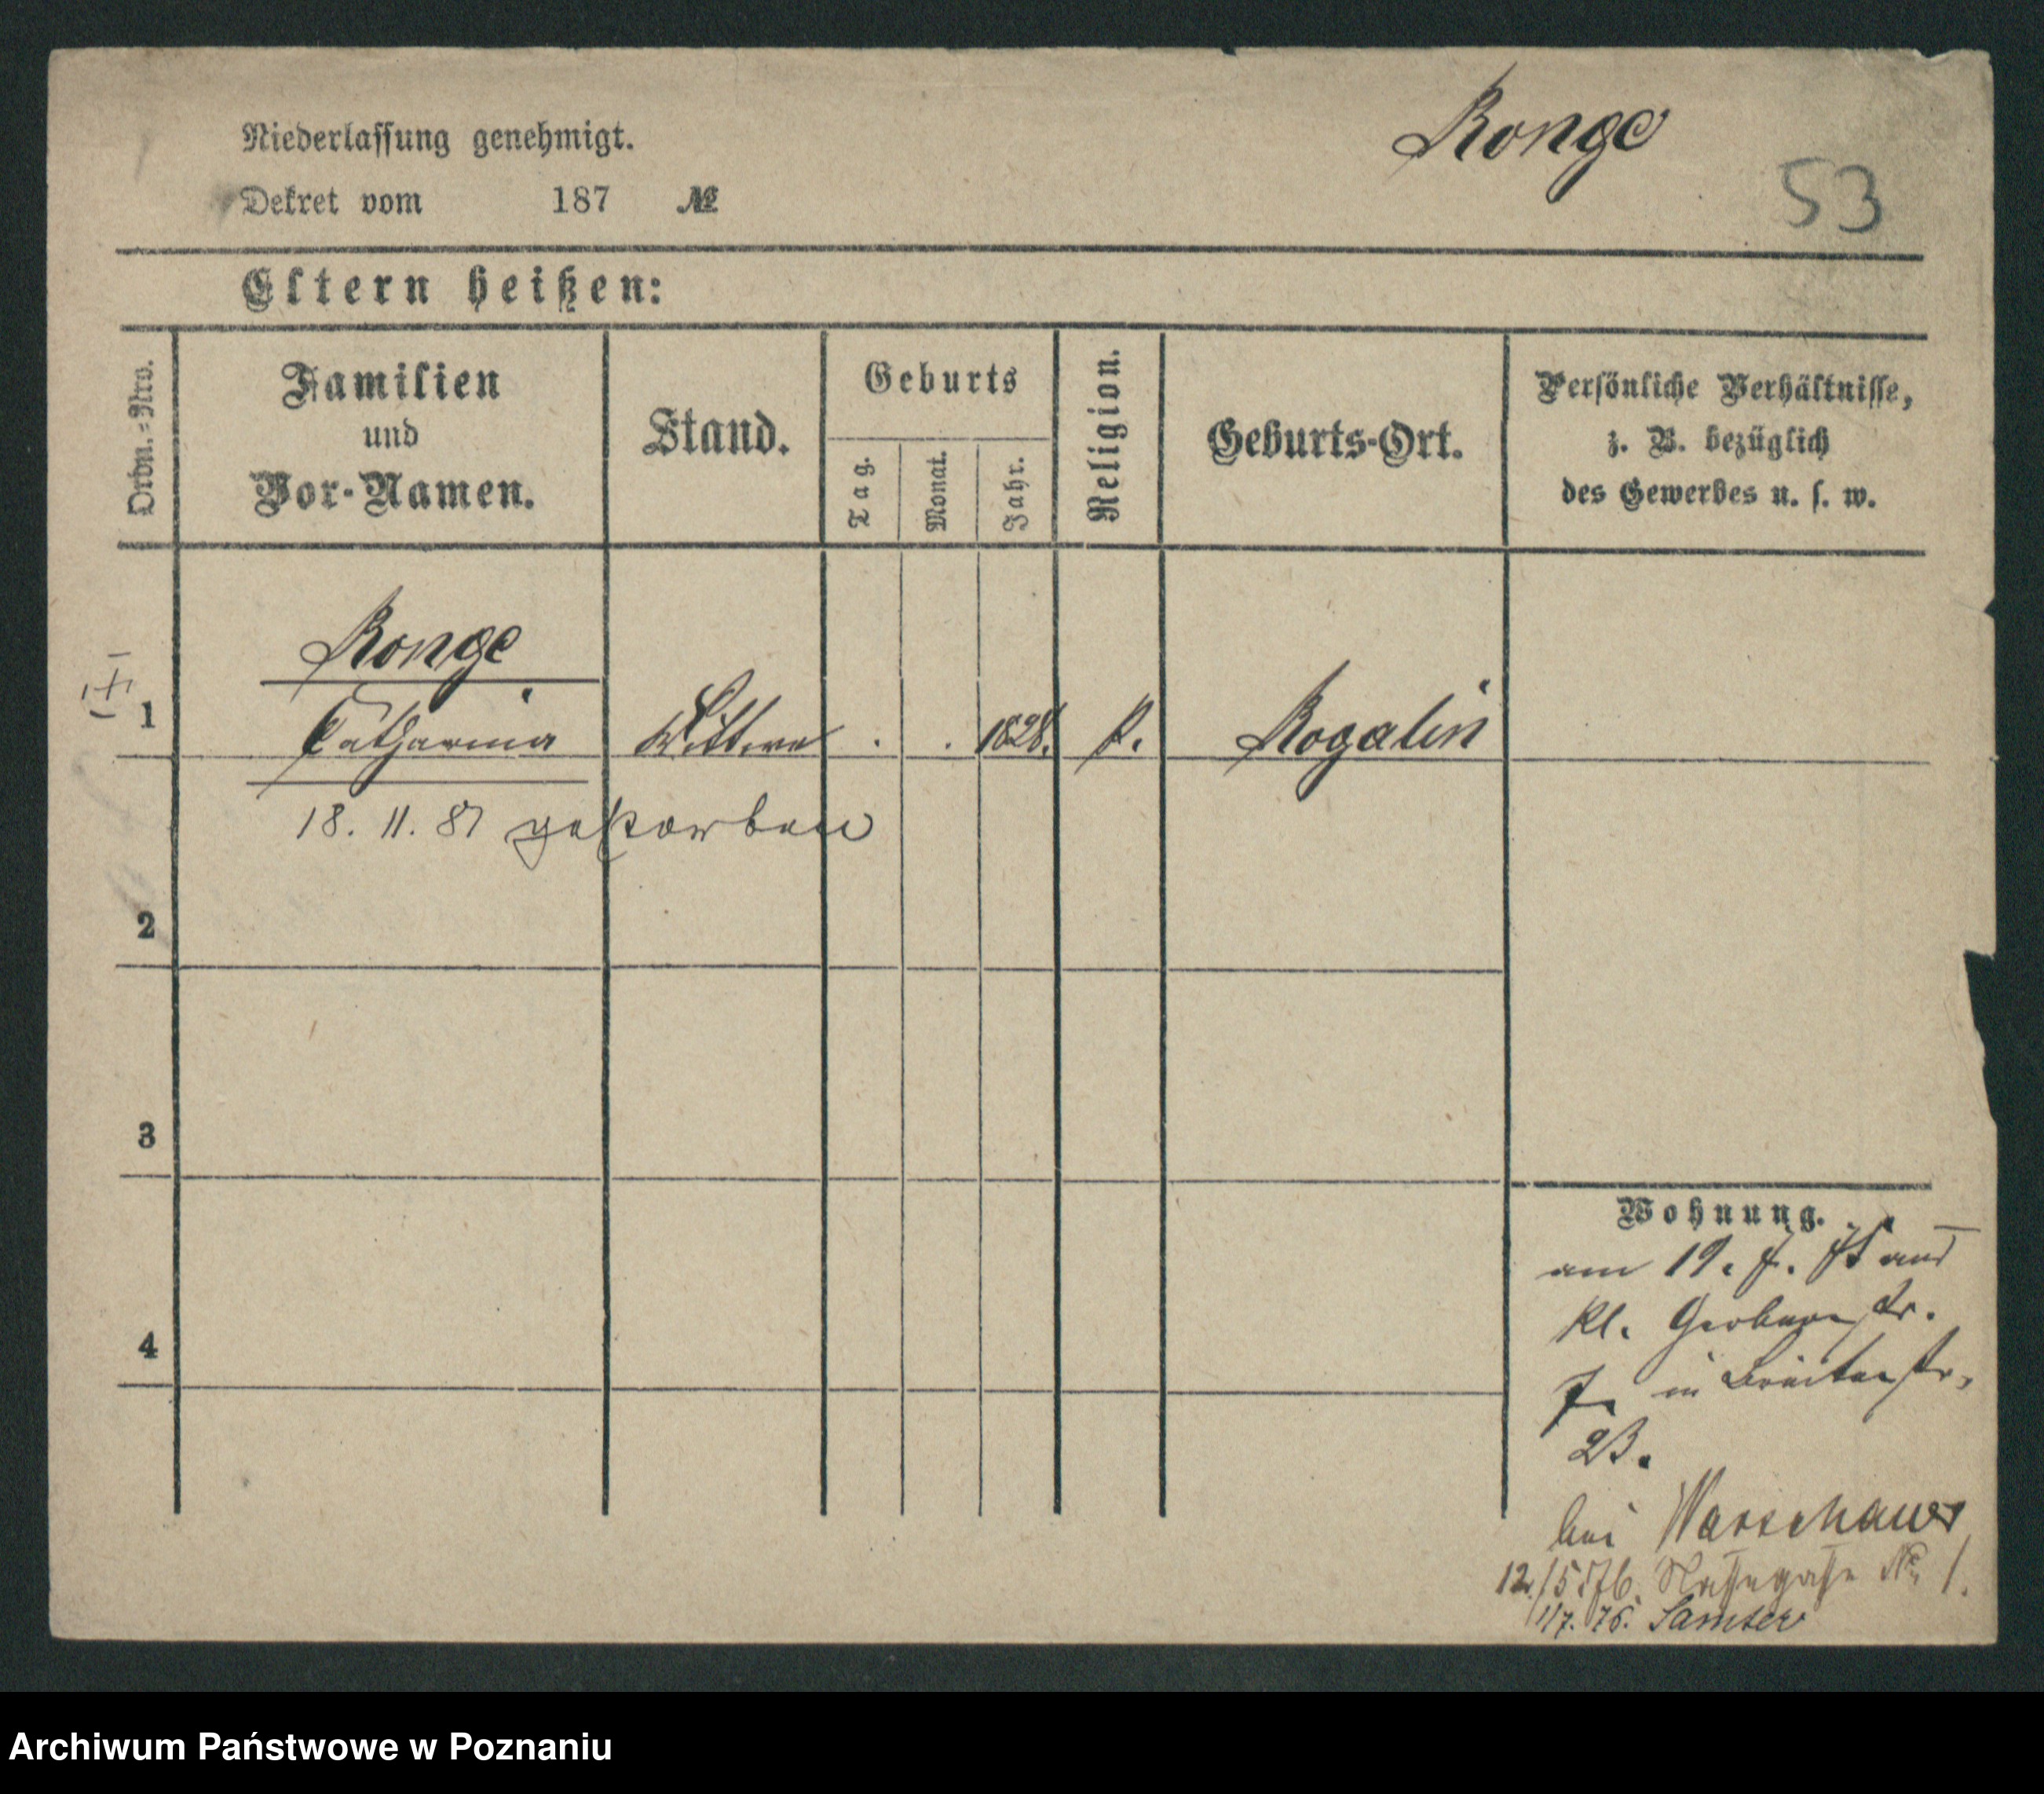 Niederlassung genehmigt.
Dekret vom 187 №
Ronge
53
Eltern heißen:
Ordn.-Nro.
Familien
und
Vor-Namen.
Stand.
Geburts
Tag.
Monat.
Jahr.
Religion.
Geburts-Ort.
Persönliche Verhältnisse,
z. B. bezüglich
des Gewerbes u. s. w.
Ronge
1 Catharina Wittwe . . 1828. k. Rogalin
18. 11. 87 gestorben
2
3
4
Wohnung.
am 19. 7. 75 aus
kl. Gerberstr.
7. in Breitestr.
23.
bei Warschauer
12/5 76. № 1.
1/7. 76. Samter
Archiwum Państwowe w Poznaniu